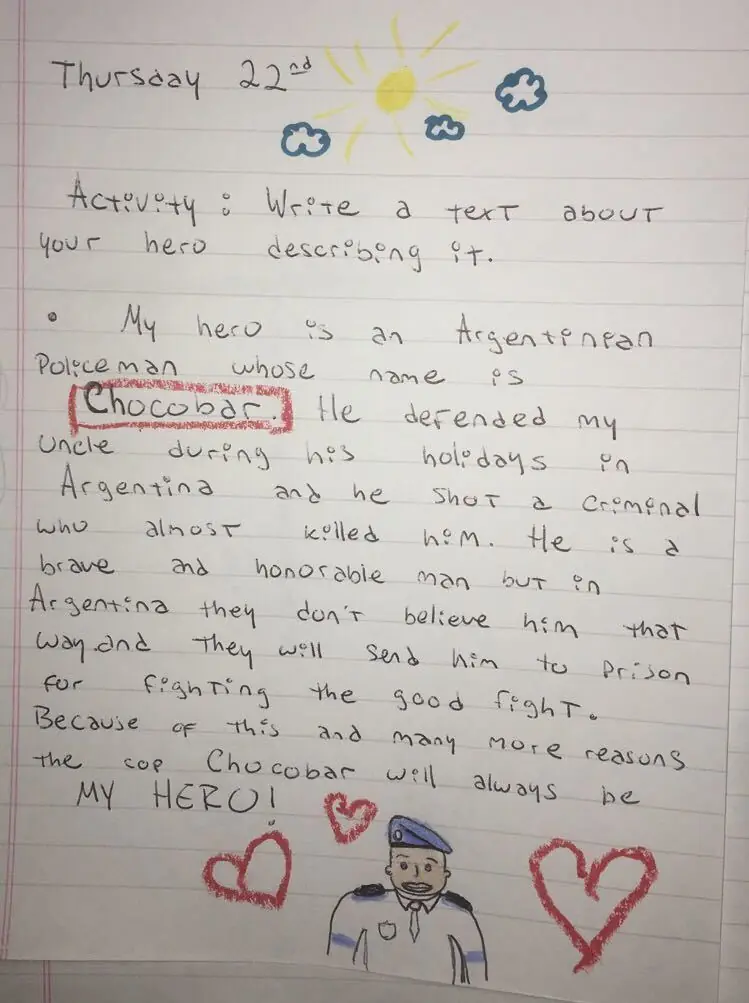 Thursday 22nd
Activity: Write a text about
your hero describing it.
• My hero is an Argentinian
Policeman whose name is
Chocobar. He defended my
uncle during his holidays in
Argentina and he shot a criminal
who almost killed him. He is a
brave and honorable man but in
Argentina they don't believe him that
way.and they will send him to prison
for fighting the good fight.
Because of this and many more reasons
the cop Chocobar will always be
MY HERO!